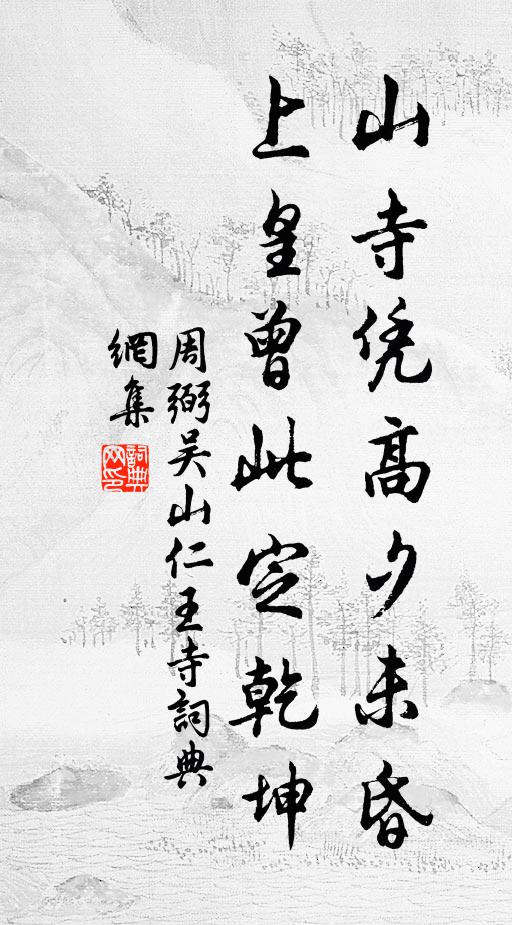 山寺凭高夕未昏
上皇曾此定乾坤
周弼吴山仁王寺詞典
網集
詞典网印